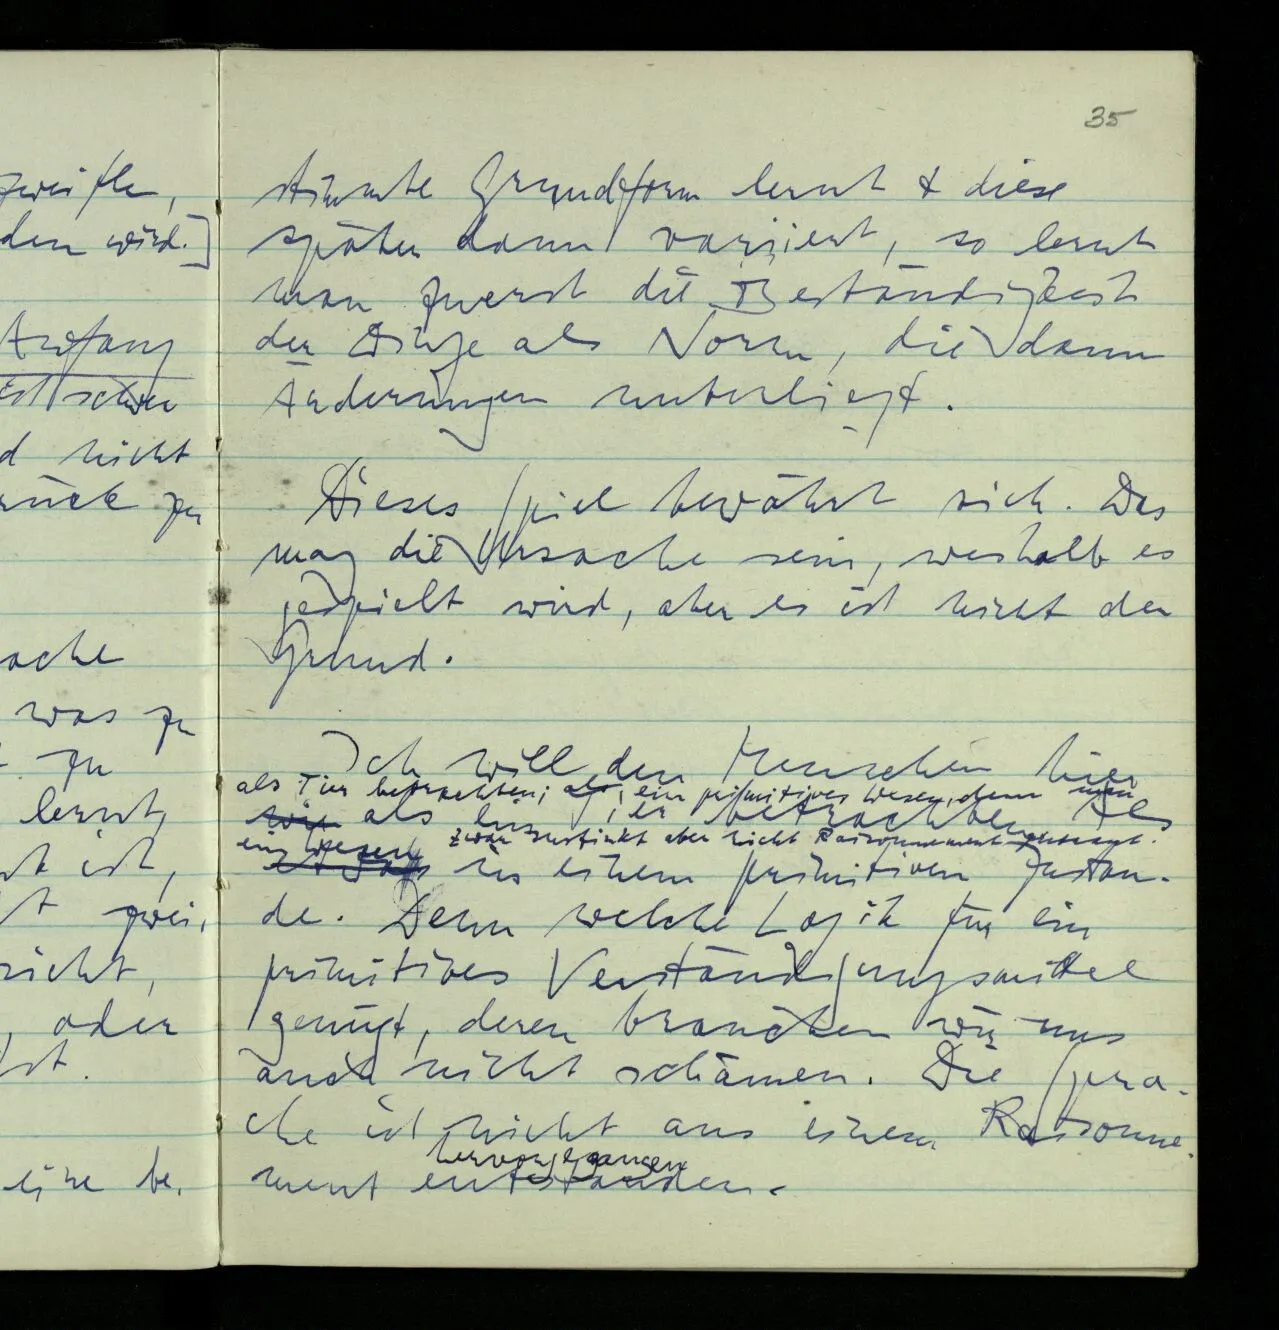 zweifle,
den wird.]
Anfang
ist schwer
d nicht
rück zu
ache
was zu
t. zu
lernt,
st ist,
t zwei,
nicht,
, oder
st.
eine be-
35
stimmte Grundform lernt & diese
später dann variiert, so lernt
man zuerst die Beständigkeit
der Dinge als Norm, die dann
Änderungen unterliegt.
Dieses Spiel bewährt sich. Das
mag die Ursache sein, weshalb es
gespielt wird, aber es ist nicht der
Grund.
Ich will den Menschen hier
als Tier betrachten; als ein primitives Wesen, dem man
wie als ein Tier betrachten als
zwar Instinkt aber nicht Raisonnement zutraut.
ein Wesen in einem primitiven Zustan-
de. Denn welche Logik für ein
primitives Verständigungsmittel
genügt, deren brauchen wir uns
auch nicht schämen. Die Spra-
che ist nicht aus einem Raisonne-
hervorgegangen
ment entstanden.